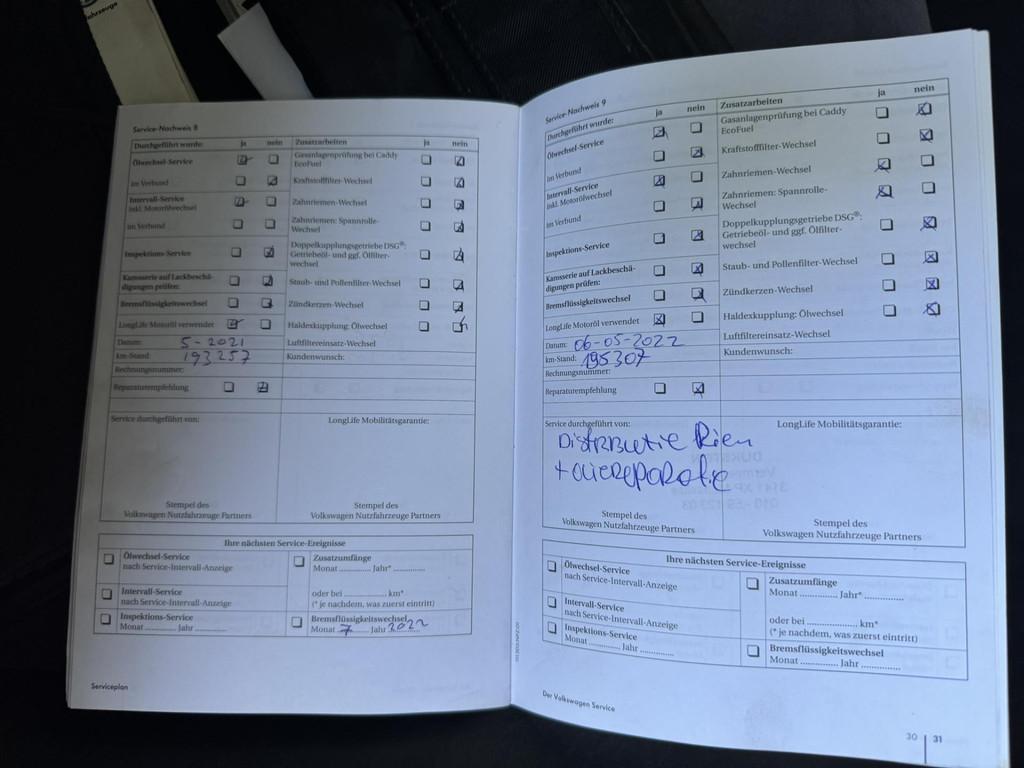 fahrzeuge
Service-Nachweis 8
Durchgeführt wurde: ja nein
Ölwechsel-Service
im Verbund
Intervall-Service
inkl. Motorölwechsel
im Verbund
Inspektions-Service
Karosserie auf Lackbeschä-
digungen prüfen:
Bremsflüssigkeitswechsel
LongLife Motoröl verwendet
Datum: 5-2021
km-Stand: 193257
Rechnungsnummer:
Reparaturempfehlung
Zusatzarbeiten ja nein
Gasanlagenprüfung bei Caddy
EcoFuel
Kraftstofffilter-Wechsel
Zahnriemen-Wechsel
Zahnriemen: Spannrolle-
Wechsel
Doppelkupplungsgetriebe DSG®:
Getriebeöl- und ggf. Ölfilter-
wechsel
Staub- und Pollenfilter-Wechsel
Zündkerzen-Wechsel
Haldexkupplung: Ölwechsel
Luftfiltereinsatz-Wechsel
Kundenwunsch:
Service durchgeführt von:
Stempel des
Volkswagen Nutzfahrzeuge Partners
LongLife Mobilitätsgarantie:
Stempel des
Volkswagen Nutzfahrzeuge Partners
Ihre nächsten Service-Ereignisse
Ölwechsel-Service
nach Service-Intervall-Anzeige
Intervall-Service
nach Service-Intervall-Anzeige
Inspektions-Service
Monat ............ Jahr ............
Zusatzumfänge
Monat ............ Jahr* ............
oder bei ............ km*
(* je nachdem, was zuerst eintritt)
Bremsflüssigkeitswechsel
Monat 7 Jahr 2022
Serviceplan
Service-Nachweis 9
Durchgeführt wurde: ja nein
Ölwechsel-Service
im Verbund
Intervall-Service
inkl. Motorölwechsel
im Verbund
Inspektions-Service
Karosserie auf Lackbeschä-
digungen prüfen:
Bremsflüssigkeitswechsel
LongLife Motoröl verwendet
Datum: 06-05-2022
km-Stand: 195307
Rechnungsnummer:
Reparaturempfehlung
Zusatzarbeiten ja nein
Gasanlagenprüfung bei Caddy
EcoFuel
Kraftstofffilter-Wechsel
Zahnriemen-Wechsel
Zahnriemen: Spannrolle-
Wechsel
Doppelkupplungsgetriebe DSG®:
Getriebeöl- und ggf. Ölfilter-
wechsel
Staub- und Pollenfilter-Wechsel
Zündkerzen-Wechsel
Haldexkupplung: Ölwechsel
Luftfiltereinsatz-Wechsel
Kundenwunsch:
Service durchgeführt von:
Distributie Riem
+ oliereparatie
Stempel des
Volkswagen Nutzfahrzeuge Partners
LongLife Mobilitätsgarantie:
Stempel des
Volkswagen Nutzfahrzeuge Partners
Ihre nächsten Service-Ereignisse
Ölwechsel-Service
nach Service-Intervall-Anzeige
Intervall-Service
nach Service-Intervall-Anzeige
Inspektions-Service
Monat ............ Jahr ............
Zusatzumfänge
Monat ............ Jahr* ............
oder bei ............ km*
(* je nachdem, was zuerst eintritt)
Bremsflüssigkeitswechsel
Monat ............ Jahr ............
Der Volkswagen Service
30 31